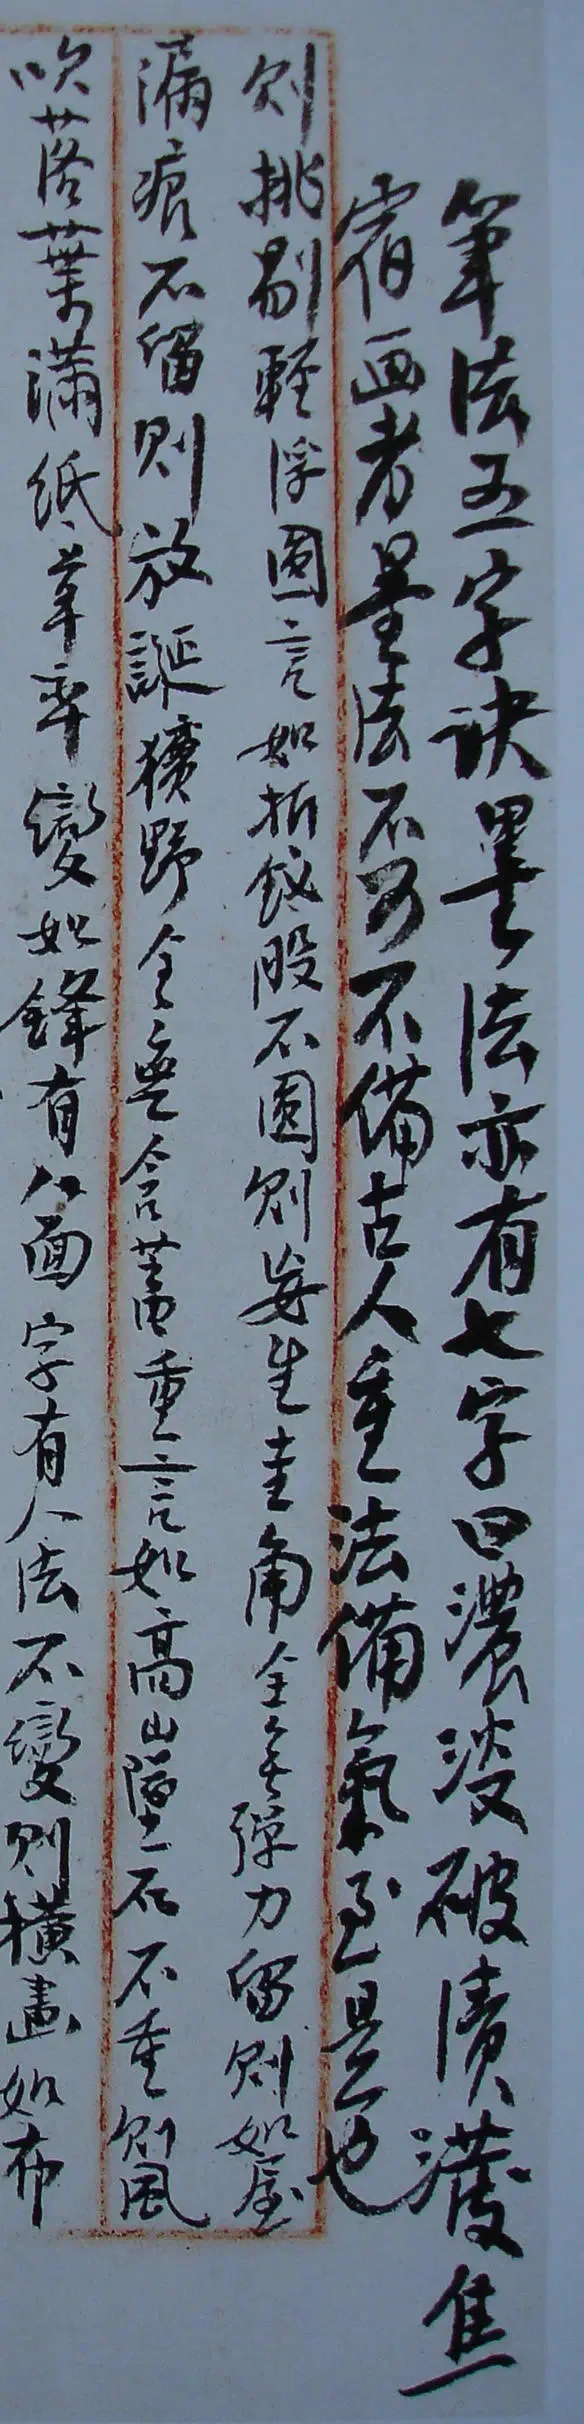 筆法五字訣墨法亦有七字曰濃淡破漬潑焦
宿画者墨法不可不備古人重法備氣至是也
則挑剔輕浮圓言如折釵股不圓則妄生圭角全無彈力留則如屋
漏痕不留則放誕獷野全無含蓄重言如高山墜石不重則風
吹落葉滿紙草率變如鋒有八面字有八法不變則橫畫如布